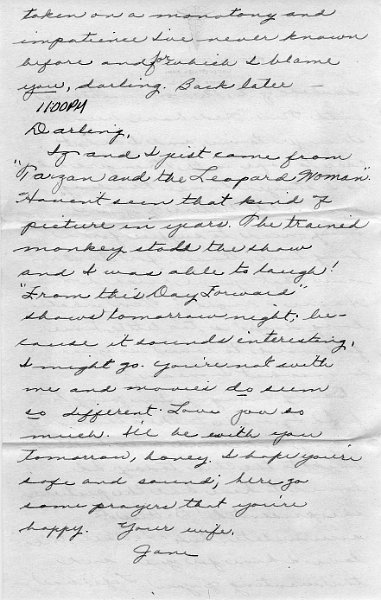 taken on a monotony and
impatience I've never known
before and for which I blame
you, darling. Back later —
1100PM
Darling,
Iz and I just came from
"Tarzan and the Leopard Woman".
Haven't seen that kind of
picture in years. The trained
monkey stole the show
and I was able to laugh!
"From this Day Forward"
shows tomorrow night; be-
cause it sounds interesting,
I might go. You're not with
me and movies do seem
so different. Love you so
much. I'll be with you
tomorrow, honey. I hope you're
safe and sound; here go
some prayers that you're
happy. Your wife,
Jane